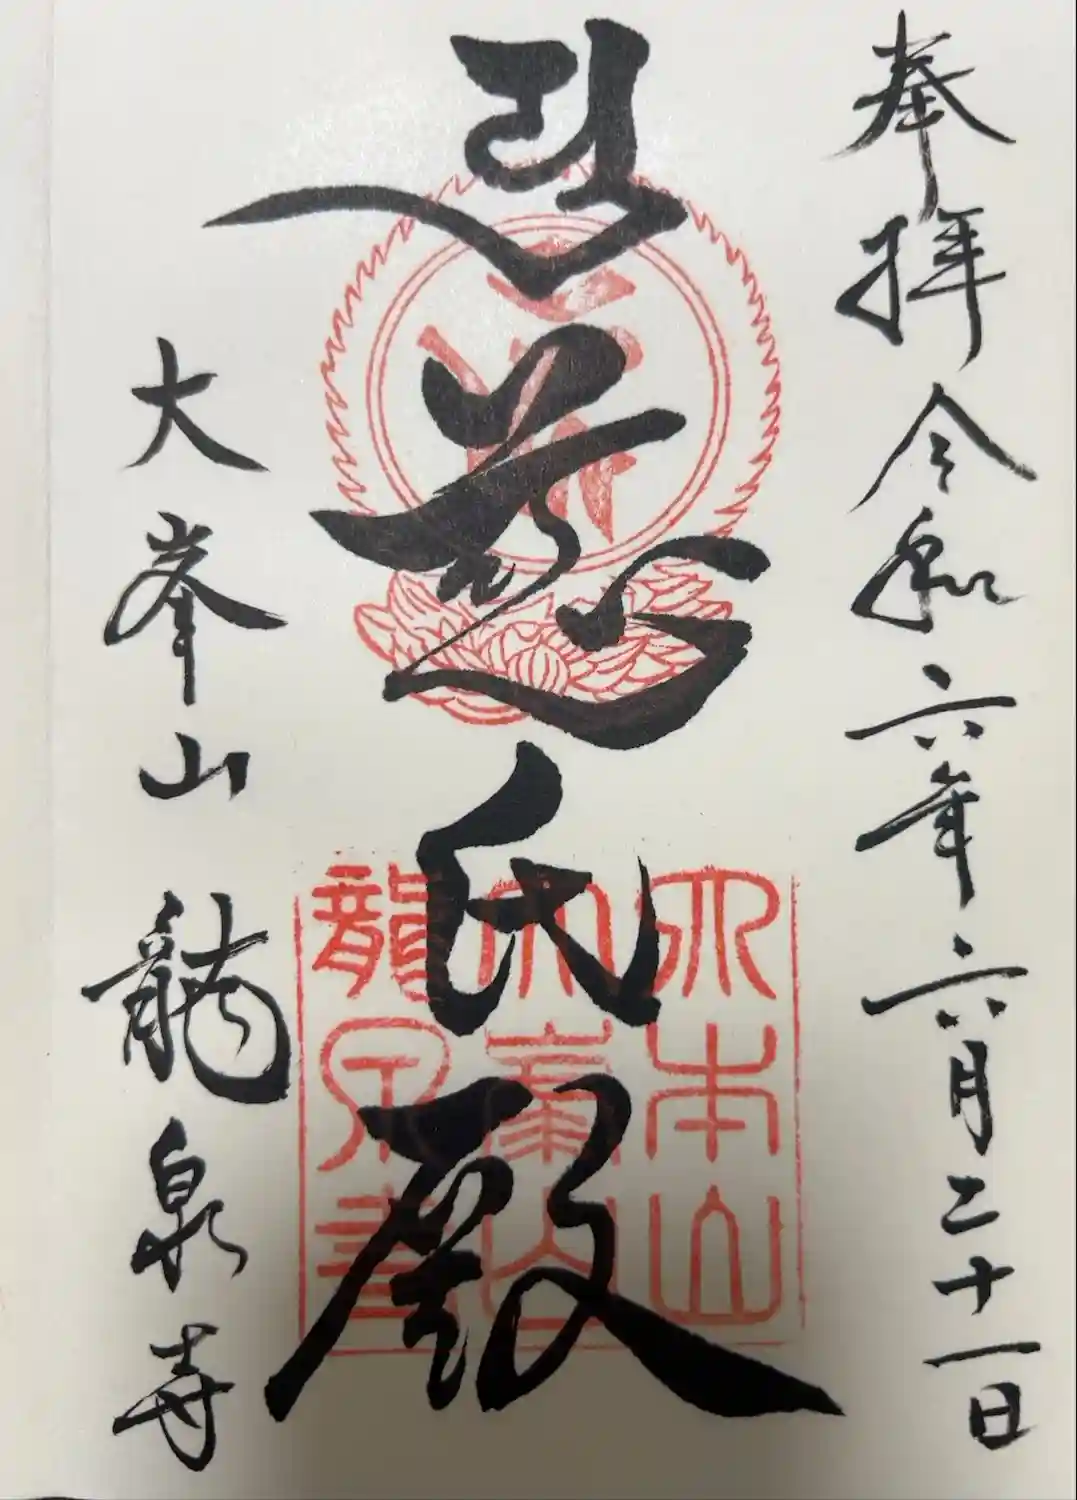 奉拝 令和六年六月二十一日
慈氏殿
大本山
大峯山
龍泉寺
大峯山 龍泉寺